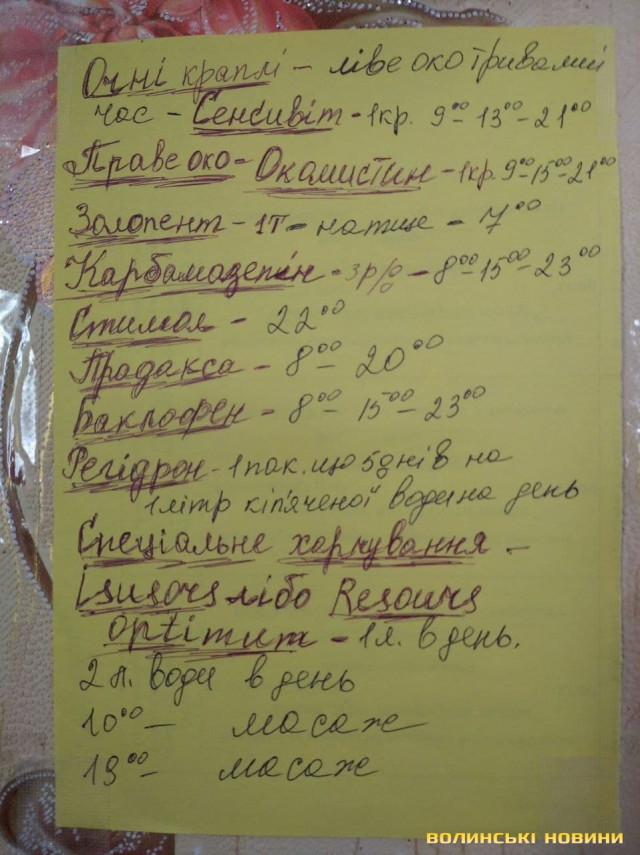 Очні краплі – ліве око тривалий
час – Сенсивіт - 1кр. 9⁰⁰ – 13⁰⁰ – 21⁰⁰
Праве око - Окамистин - 1кр. 9⁰⁰-15⁰⁰-21⁰⁰
Золопент – 1т – натще – 7⁰⁰
Карбамазепін - 3р/о – 8⁰⁰ 15⁰⁰ - 23⁰⁰
Стимол – 22⁰⁰
Прадакса – 8⁰⁰ – 20⁰⁰
Баклофен - 8⁰⁰ – 15⁰⁰ – 23⁰⁰
Регідрон - 1 пак. що 5 днів на
1 літр кіп'яченої води на день
Спеціальне харчування –
лібо Resours
optimum – 1л. в день.
2 л. води в день
10⁰⁰ – масаж
19⁰⁰ – масаж
ВОЛИНСЬКІ НОВИНИ